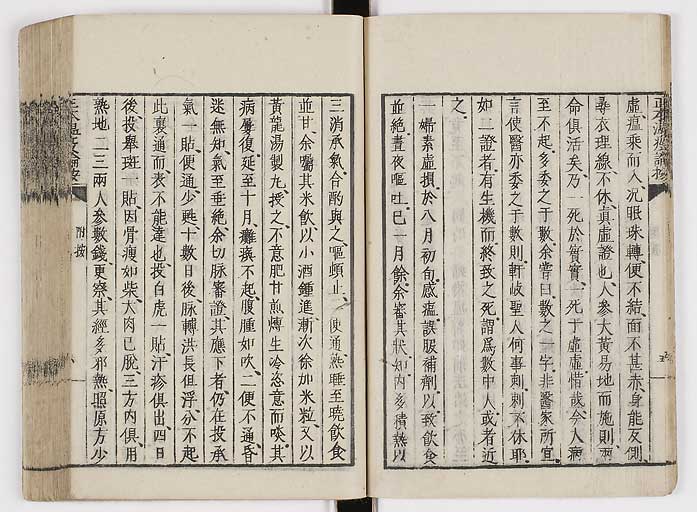 虛瘟乘而入况眼珠轉便不結面不甚赤身能反側
尋衣理線不休真虛證也人參大黃易地而施則兩
命俱活矣乃一死於實實一死于虛虛惜哉今人病
至不起多委之于數余嘗曰數之一字非醫家所宜
言使醫亦委之于數則軒岐聖人何事刺刺不休耶
如二證者有生機而終致之死謂爲數中人或者近
之
一婦素虛損於八月初旬感瘟誤服補劑以致飲食
並絕晝夜嘔吐已一月餘余審其狀知內多積熱以
三消承氣合酌與之嘔頓止二便通熟睡至曉飲食
並甘余囑其米飲以小酒鍾進漸次徐加米粒又以
黃龍湯製丸授之不意肥甘煎煿生冷恣意而啖其
病屢復延至十月癱瘓不起腹腫如吹二便不通昏
迷無知氣至垂絕余切脉審證其應下者仍在投承
氣一貼便通少甦十數日後脉轉洪長但浮分不起
此裏通而表不能達也投白虎一貼汗疹俱出四日
後投舉斑一貼因骨瘦如柴大肉已脫三方內俱用
熟地一二三兩人參數錢更察其經多邪熱照原方少
附按